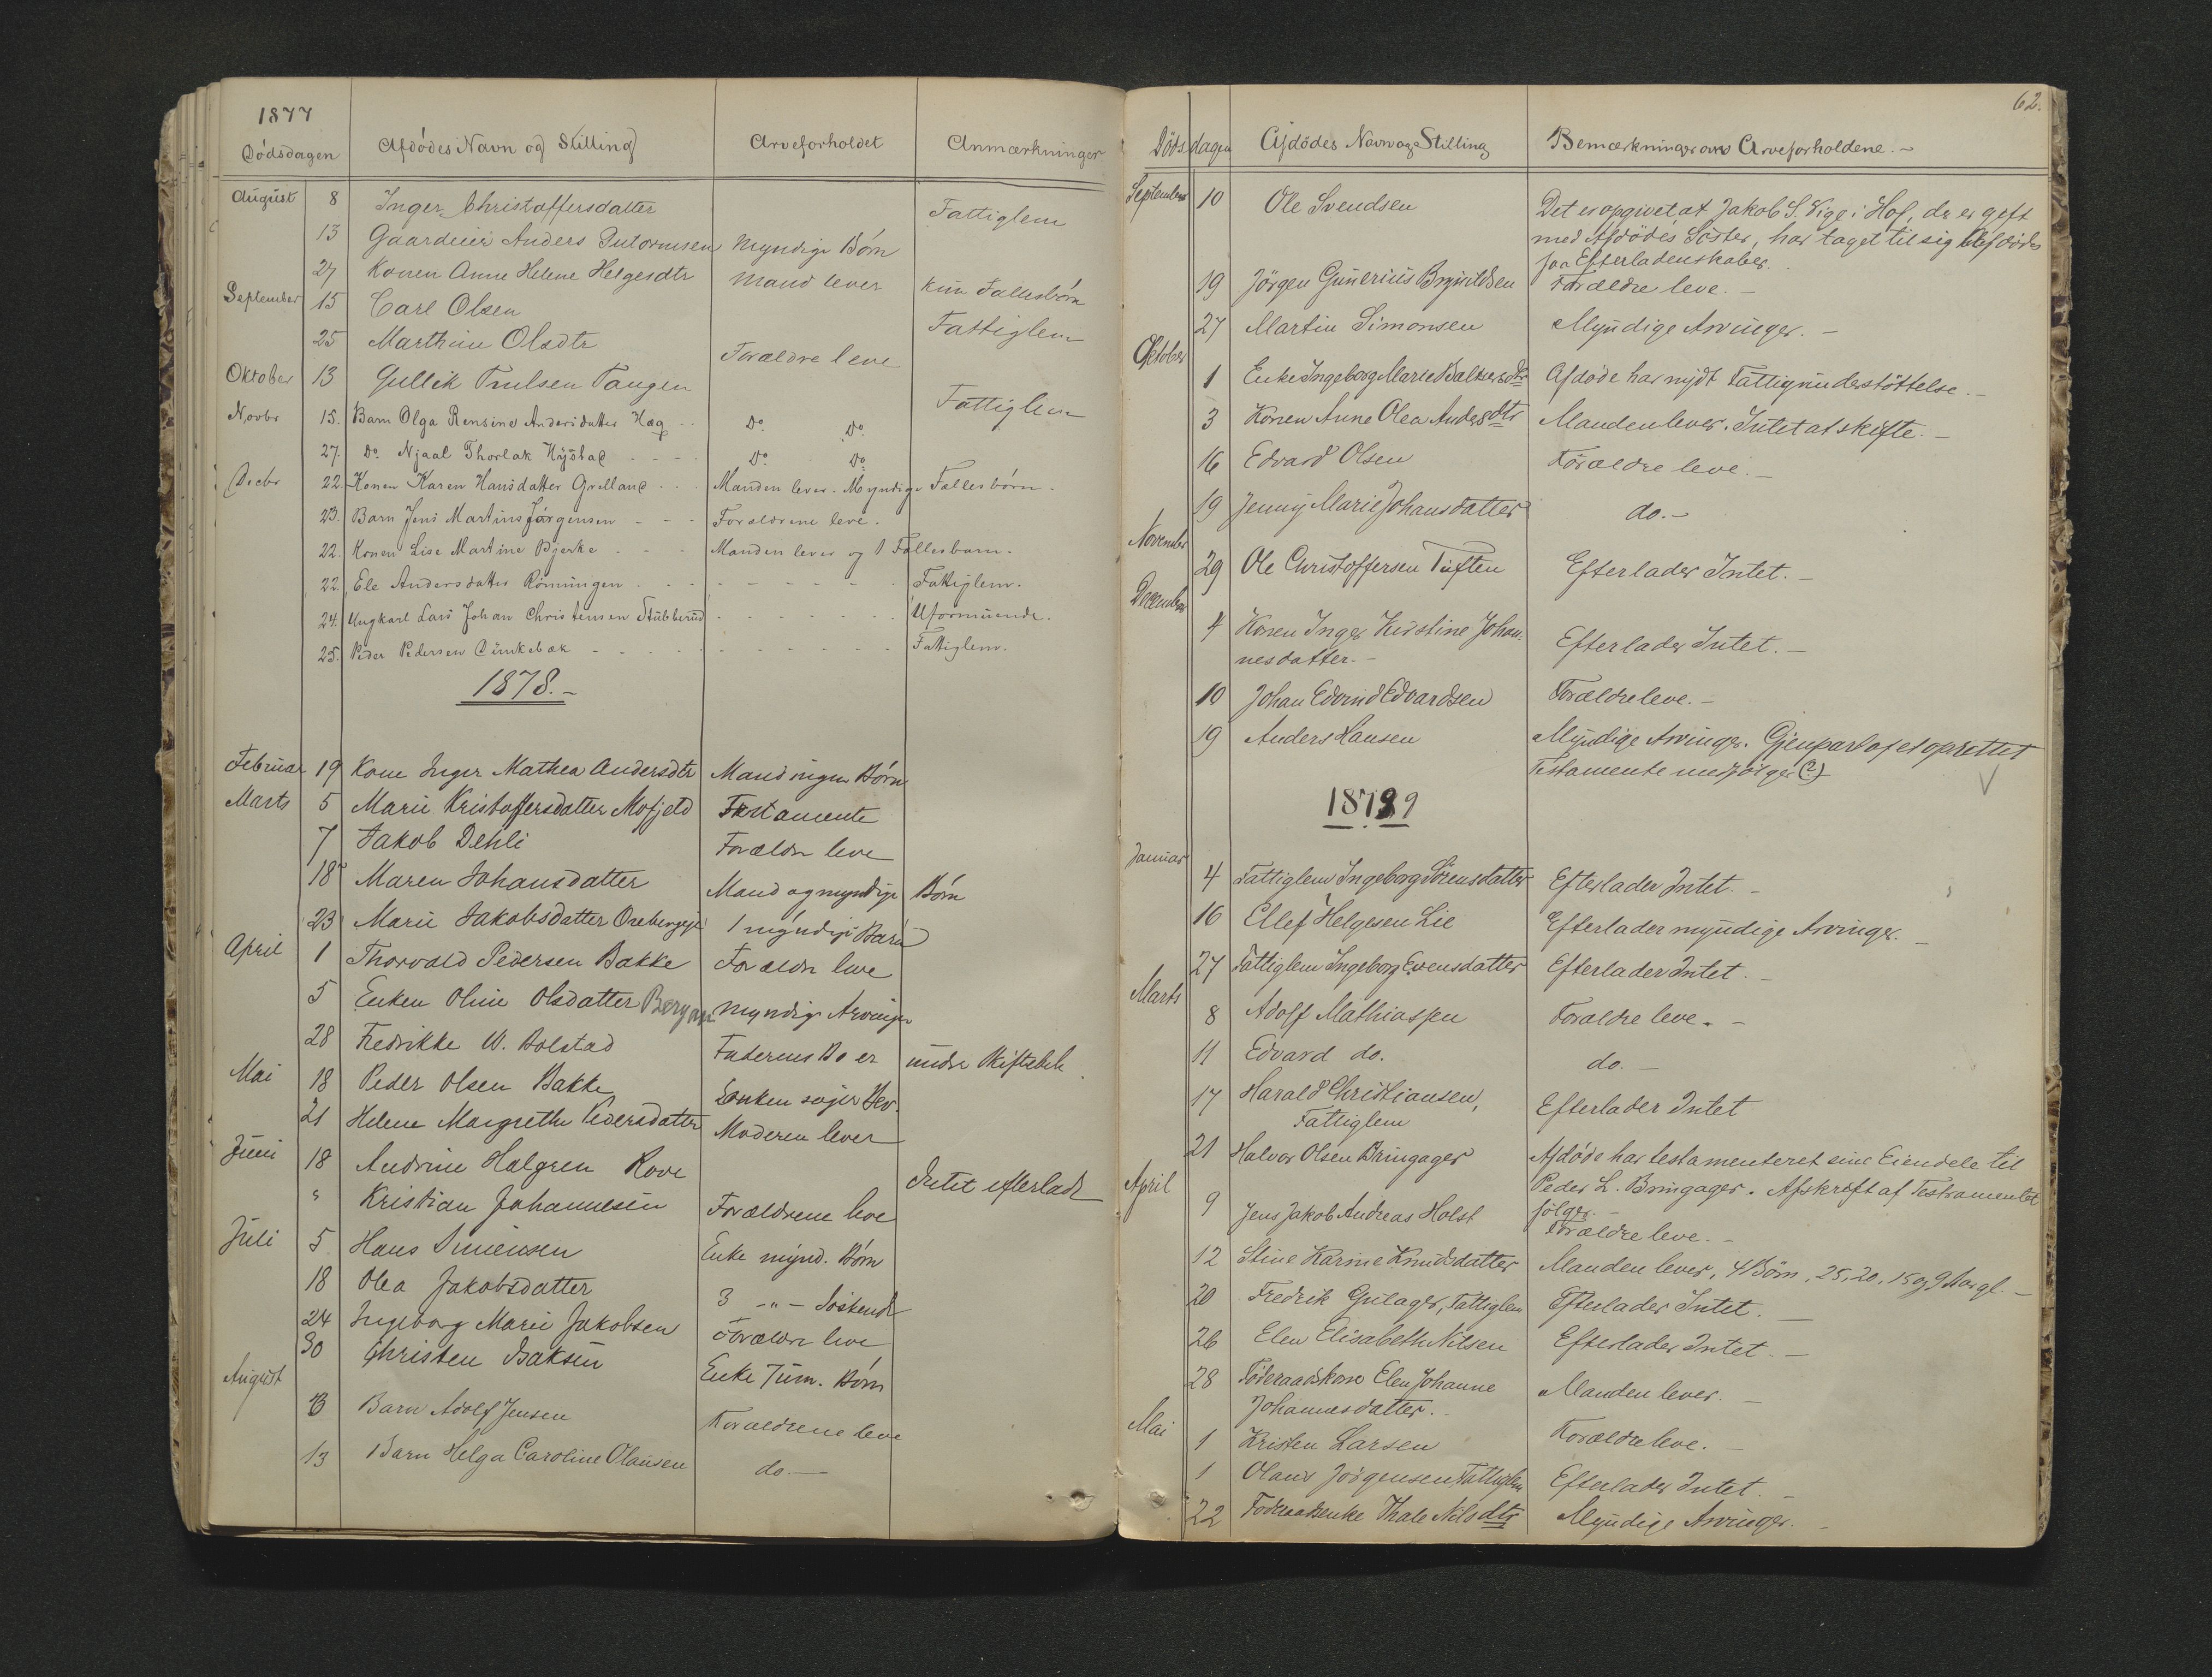 1877
Dödsdagen Afdödes Navn og Stilling Arveforholdet Anmærkninger
August 8 Inger Christoffersdatter Fattiglem
13 Gaardeier Anders Myndige Börn
27 Konen Anne Helene Helgesdtr Mand lever kun Fællesbörn
September 15 Carl Olsen Fattiglem
25 Marthine Olsdtr Forældre leve
Oktober 13 Gullik Trulsen Tangen Fattiglem
Novbr 15. Barn Olga Rensine Andersdatter Hæg Do Do
27. Do Njaal Thorlak Do Do
Decbr 22. Konen Karen Hansdatter Grelland Manden lever. Myndige Fællesbörn.
23. Barn Jens Martins Jörgensen Forældrene leve.
22. Konen Lise Martine Bjerke Manden lever og 1 Fællesbarn.
22. Ele Andersdatter Rönningen Fattiglem.
24. Ungkarl Lars Johan Christensen Stubberud Uformuende.
25. Peder Pedersen Fattiglem.
1878.-
Februar 19 Kone Inger Mathea Andersdtr Mand ingen Börn
Marts 5 Marie Kristoffersdatter Mofjeld Testamente
7 Jakob Dehli Forældre leve
18 Maren Johansdatter Mand og myndige Börn
23 Marie Jakobsdatter 1 myndigt Barn
April 1 Thorvald Pedersen Bakke Forældre leve
5 Enken Oline Olsdatter Bergan Myndige Arvinger
28 Fredrikke W. Bolstad Faderens Bo er under Skiftebeh.
Mai 18 Peder Olsen Bakke Enken
21 Helene Margrethe Pedersdatter Moderen lever
Juni 18 Andrine Halgren Rove Intet efterladt
" Kristian Johannesen Forældrene leve
Juli 5 Hans Simensen Enke mynd. Börn
18 Olea Jakobsdatter 3 -"- Söskende
24 Ingeborg Marie Jakobsen Forældre leve
30 Christen Isaksen Enke 7 um. Börn
August
Barn Adolf Jensen Forældrene leve
13 Barn Helga Caroline Olausen do.-
62.
Dödsdagen Afdödes Navn og Stilling Bemærkninger om Arveforholdene.-
September 10 Ole Svendsen Det er opgivet at Jakob S. Sige i Hof, der er gift
med Afdödes Söster, har taget til sig Afdödes
faa Efterladenskaber.
19 Jörgen Gunerius Brynildsen Forældre leve.-
27 Martin Simonsen Myndige Arvinger.-
Oktober
1 Enke Ingeborg Marie Balkersdtr Afdöde har nydt Fattigunderstöttelse.-
3 Konen Anne Olea Andersdtr Manden lever. Intet at skifte.-
16 Edvard Olsen Forældre leve.-
19 Jenny Marie Johansdatter do.-
November
29 Ole Christoffersen Tuften Efterlader Intet.-
December
4 Konen Inger Kirstine Johan-
nesdatter.- Efterlader Intet.-
10 Johan Edvind Edvardsen Forældre leve.-
19 Anders Hansen Myndige Arvinger. Gjenpart af et oprettet
Testamente medfölger (2) V
1879
Januar
4 Fattiglem Ingeborg Sörensdatter Efterlader Intet.-
16 Ellef Helgesen Lie Efterlader myndige Arvinger.-
27 Fattiglem Ingeborg Evensdatter Efterlader Intet.-
Marts
8 Adolf Mathiassen Forældre leve.-
11 Edvard do. do.-
17 Harald Christiansen,
Fattiglem Efterlader Intet
21 Halvor Olsen Bringager Afdöde har testamenteret sine Eiendele til
April Peder L. Bringager. Afskrift af Testamentet
fölger.-
9 Jens Jakob Andreas Holst Forældre leve.-
12 Stine Karine Knudsdatter Manden lever, 4 Börn, 25, 20, 15 og 9 Aar gl.-
20 Fredrik Gulager, Fattiglem Efterlader Intet.-
26 Elen Elisabeth Nilsen Efterlader Intet.-
28 Föderaadskone Elen Johanne
Johannesdatter.- Manden lever.-
Mai
1 Kristen Larsen Forældre leve.-
1 Olaus Jörgensen, Fattiglem Efterlader Intet.-
22 Föderaadsenke Thale Nilsdtr Myndige Arvinger.-